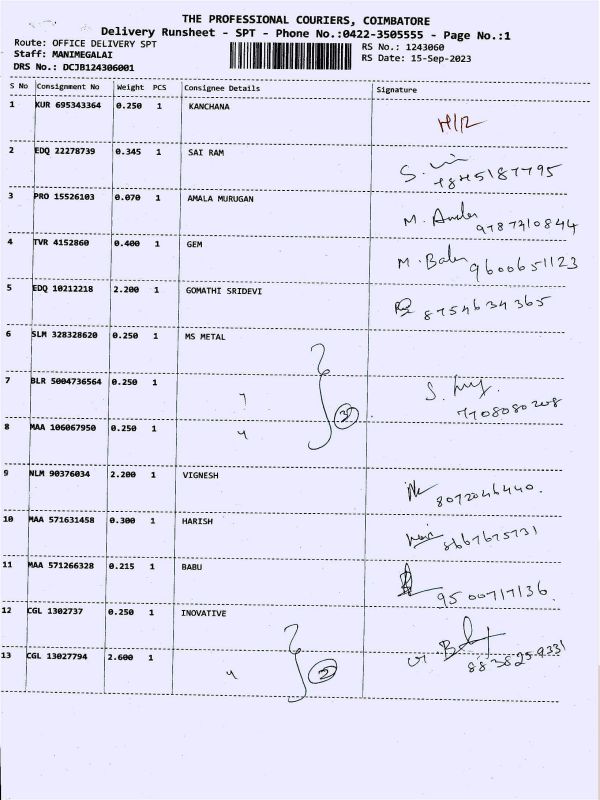 THE PROFESSIONAL COURIERS, COIMBATORE
Delivery Runsheet - SPT - Phone No.:0422-3505555 - Page No.:1
Route: OFFICE DELIVERY SPT
Staff: MANIMEGALAI
DRS No.: DCJB124306001
RS No.: 1243060
RS Date: 15-Sep-2023
S No Consignment No Weight PCS Consignee Details Signature
1 KUR 695343364 0.250 1 KANCHANA H/R
2 EDQ 22278739 0.345 1 SAI RAM
3 PRO 15526103 0.070 1 AMALA MURUGAN M.
9787710844
4 TVR 4152860 0.400 1 GEM M.
9600651123
5 EDQ 10212218 2.200 1 GOMATHI SRIDEVI 8754634365
6 SLM 328328620 0.250 1 MS METAL
7 BLR 5004736564 0.250 1 S.
7708080208
8 MAA 106067950 0.250 1
3
9 NLM 90376034 2.200 1 VIGNESH 8072046440.
10 MAA 571631458 0.300 1 HARISH 8667675731
11 MAA 571266328 0.215 1 BABU 9500717136.
12 CGL 1302737 0.250 1 INOVATIVE
13 CGL 13027794 2.600 1 2 8838259331